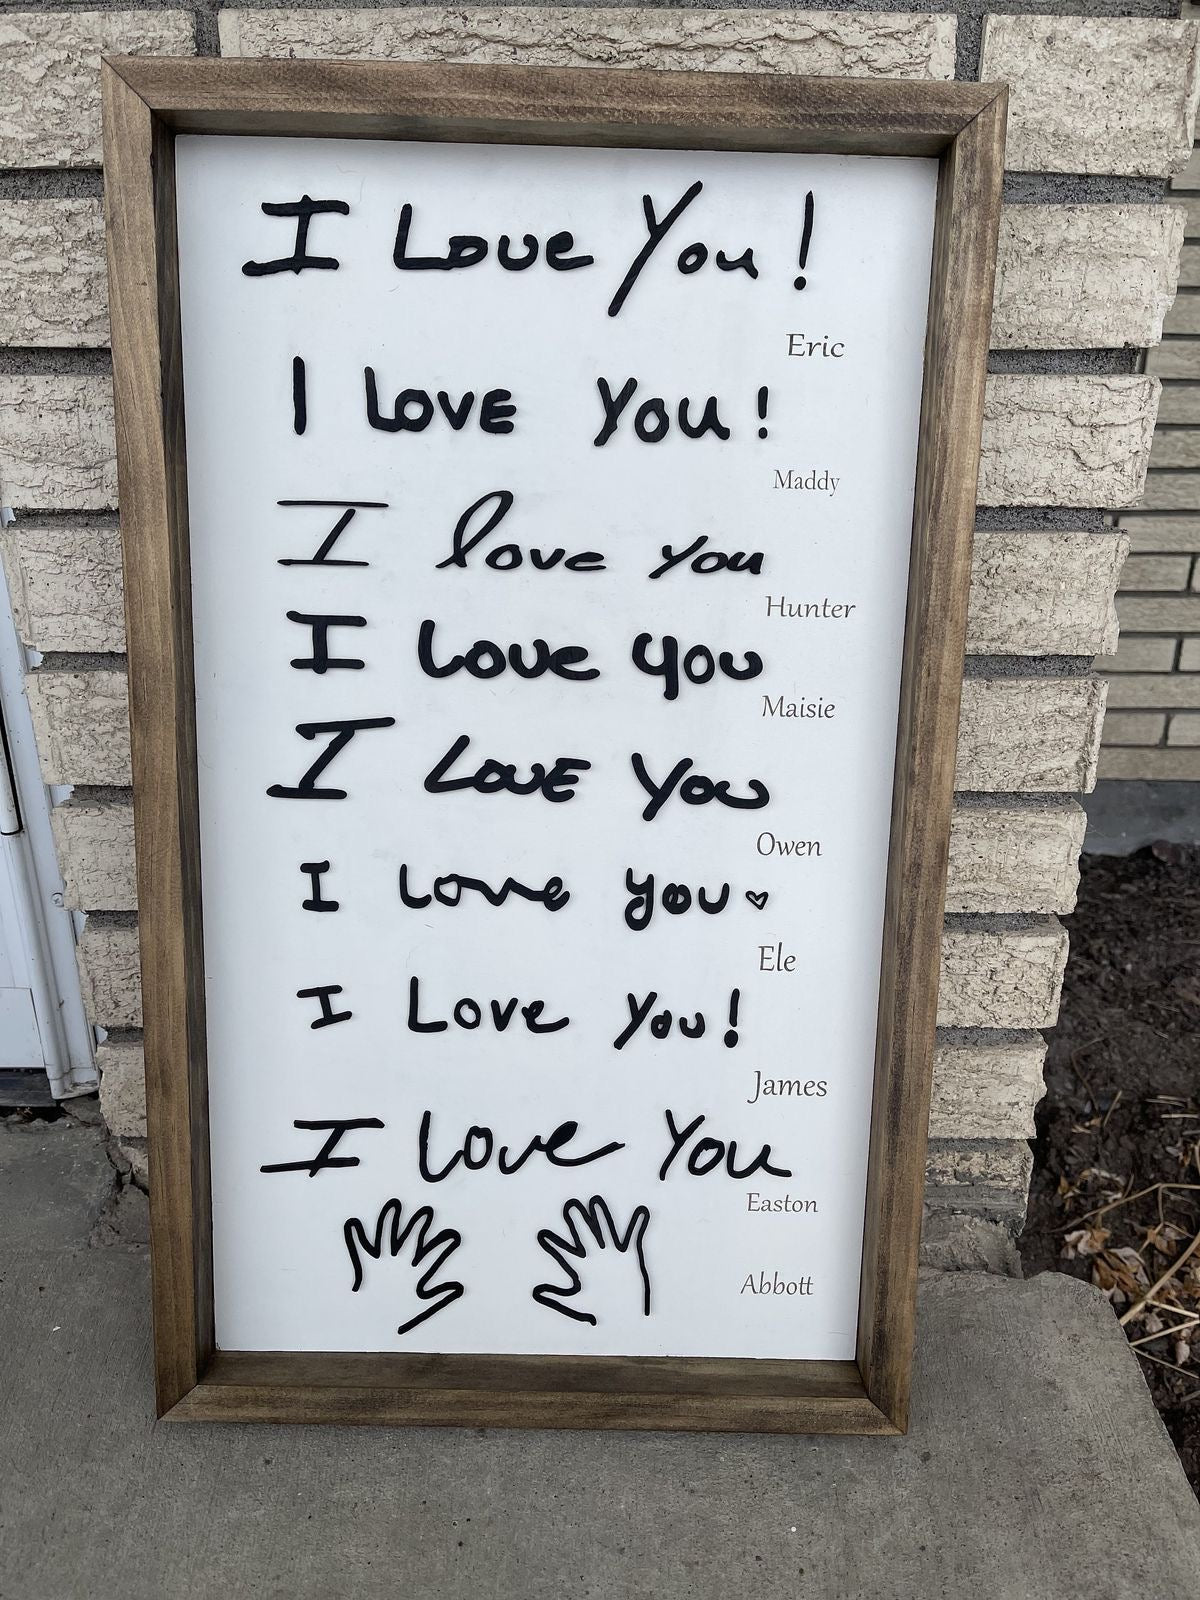 I Love You!
Eric
I LOVE YOU!
Maddy
I love you
Hunter
I Love you
Maisie
I LOVE YOU
Owen
I Love you♡
Ele
I Love You!
James
I Love You
Easton
Abbott